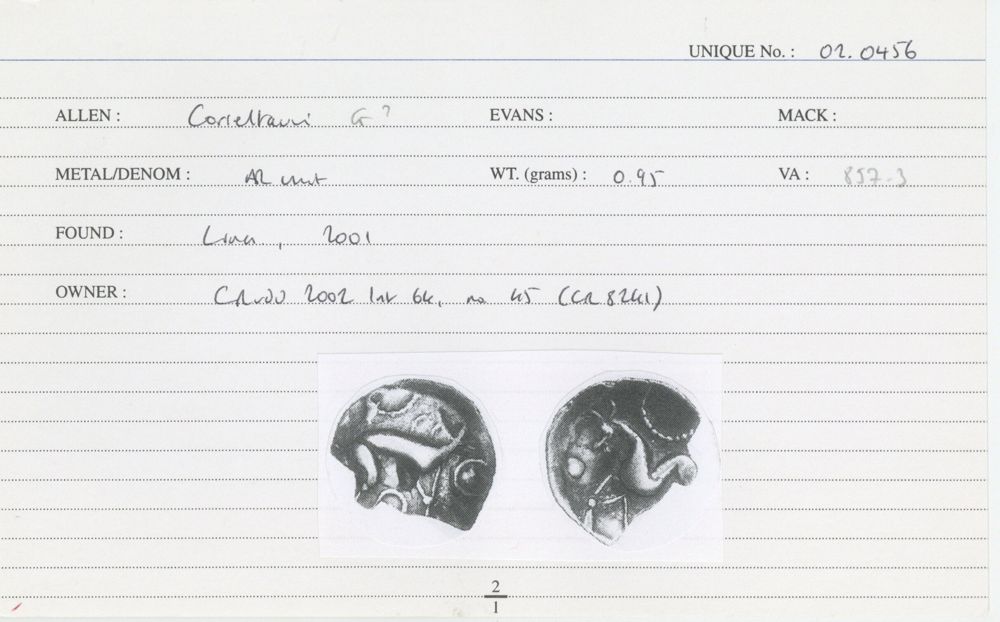 UNIQUE No. : 02.0456
ALLEN : Corieltauvi G? EVANS : MACK :
METAL/DENOM : AR unit WT. (grams) : 0.95 VA : 857-3
FOUND : , 2001
OWNER : 2002 64, no 45 (CR 8241)
2
1